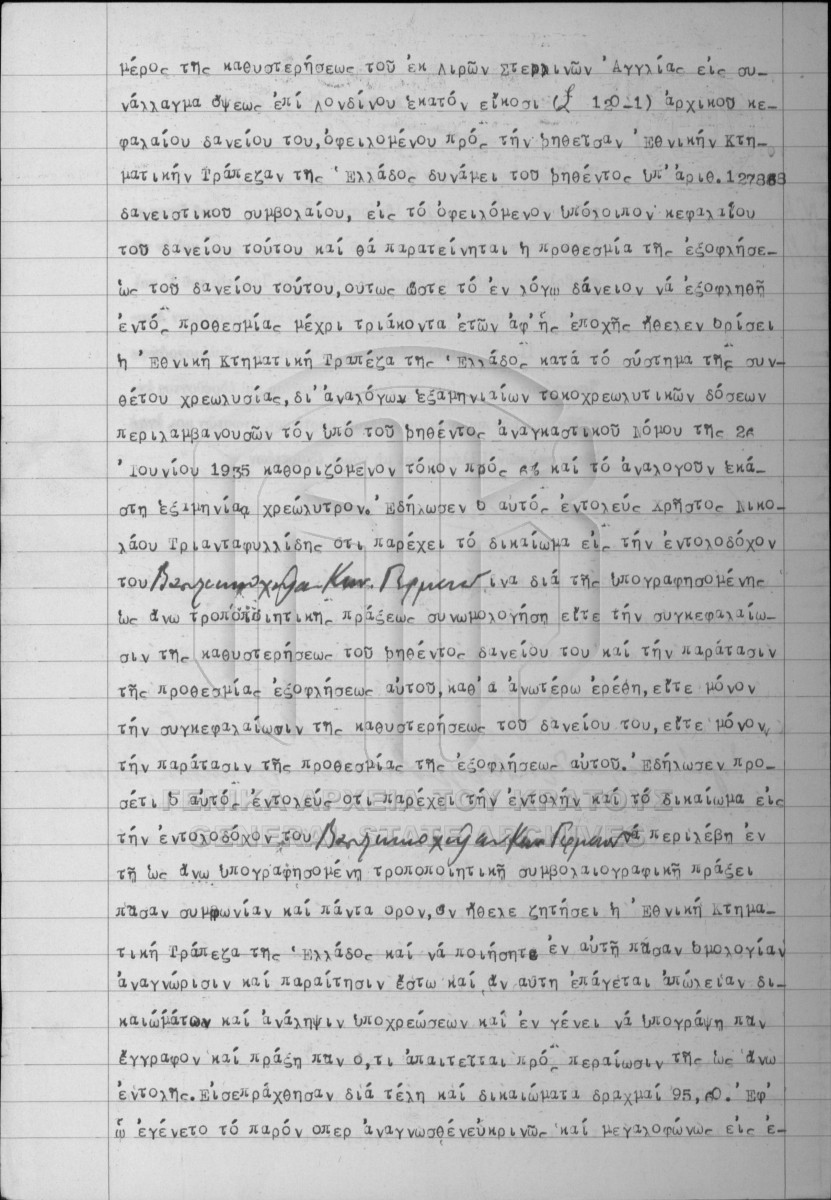 μέρος της καθυστερήσεως τοῦ ἐκ Λιρῶν Στερλινῶν Ἀγγλίας εἰς συ-
νάλλαγμα ὄψεως ἐπί Λονδίνου ἑκατόν εἴκοσι (£ 120-1) ἀρχικοῦ κε-
φαλαίου δανείου του, ὀφειλομένου πρός τήν ῥηθεῖσαν Ἐθνικήν Κτη-
ματικήν Τράπεζαν τῆς Ἑλλάδος δυνάμει τοῦ ῥηθέντος ὑπ' ἀριθ.
δανειστικοῦ συμβολαίου, εἰς τό ὀφειλόμενον ὑπόλοιπον κεφαλαίου
τοῦ δανείου τούτου καί θά παρατείνηται ἡ προθεσμία τῆς ἐξοφλήσε-
ὡς τοῦ δανείου τούτου, ουτως ὥστε τό ἐν λόγω δάνειον νά ἐξοφληθῆ
ἐντός προθεσμίας μέχρι τριάκοντα ἐτῶν ἀφ' ἧς ἐποχῆς ἤθελεν ὁρίσει
ἡ Ἐθνική Κτηματική Τραπέζα της Ἑλλάδος κατά τό σύστημα τῆς συν-
θέτου χρεωλυσίας, δι' ἀναλόγων ἑξαμηνιαίων τοκοχρεωλυτικῶν δόσεων
περιλαμβανουσῶν τόν ὑπό τοῦ ῥηθέντος ἀναγκαστικοῦ Νόμου τῆς
Ἰουνίου 1935 καθοριζόμενον τόκον πρός καί τό ἀναλογοῦν ἑκά-
στη ἑξαμηνίαα χρεώλυτρον. Ἐδήλωσεν ὁ αὐτός ἐντολεύς Χρῆστος Νικο-
λάου Τριανταφυλλίδης οτι παρέχει τό δικαίωμα εἰς τήν ἐντολοδόχον
του ινα διά τῆς ὑπογραφησομένης
ὡς ἄνω τροποποιητικῆς πράξεως συνωμολογήση εἴτε τήν συγκεφαλαίω-
σιν τῆς καθυστερήσεως τοῦ ῥηθέντος δανείου του καί τήν παράτασιν
τῆς προθεσμίας ἐξοφλήσεως αὐτοῦ, καθ' α ἀνωτέρω ἐρέθη, εἴτε μόνον
τήν συγκεφαλαίωσιν τῆς καθυστερήσεως τοῦ δανείου του, εἴτε μόνον,
τήν παράτασιν τῆς προθεσμίας τῆς ἐξοφλήσεως αὐτοῦ. Ἐδήλωσεν προ-
σέτι ὁ αὐτός ἐντολεύς οτι παρέχει τήν ἐντολήν καί τό δικαίωμα εἰς
τήν ἐντολοδόχον του νά περιλέβη ἐν
τῆ ὡς ἄνω ὑπογραφησομένη τροποποιητικῆ συμβολαιογραφικῆ πράξει
πασαν συμφωνίαν καί πάντα ορον, ὅν ἤθελε ζητήσει ἡ Ἐθνική Κτημα-
τική Τράπεζα τῆς Ἑλλάδος καί νά ποιήσητε ἐν αὐτῆ πασαν ὁμολογίαν
ἀναγνώρισιν καί παραίτησιν ἔστω καί ἄν αυτη ἐπάγεται ἀπώλειαν δι-
καιώμάτων καί ἀνάληψιν ὑποχρεώσεων καί ἐν γένει νά ὑπογράψη παν
ἔγγραφον καί πράξη παν ο, τι ἀπαιτεῖται πρός περαίωσιν τῆς ὡς ἄνω
ἐντολῆς. Εἰσεπράχθησαν διά τέλη καί δικαιώματα δραχμαί Ἐφ'
ᾧ ἐγένετο τό παρόν οπερ ἀναγνωσθένεὐκρινῶς καί μεγαλοφώνως εἰς ἐ-
ΓΕΝΙΚΑ ΑΡΧΕΙΑ ΤΟΥ ΚΡΑΤΟΥΣ
GENERAL STATE ARCHIVES